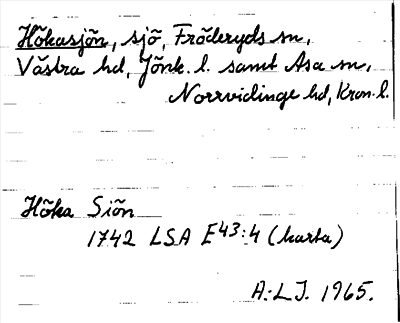 Hökasjön, sjö, Fröderyds sn,
Västra hd, Jönk. l. samt Asa sn,
Norrvidinge hd, Kron. l.
Höka Siön
1742 LSA E43:4 (karta)
A.-L.J. 1965.